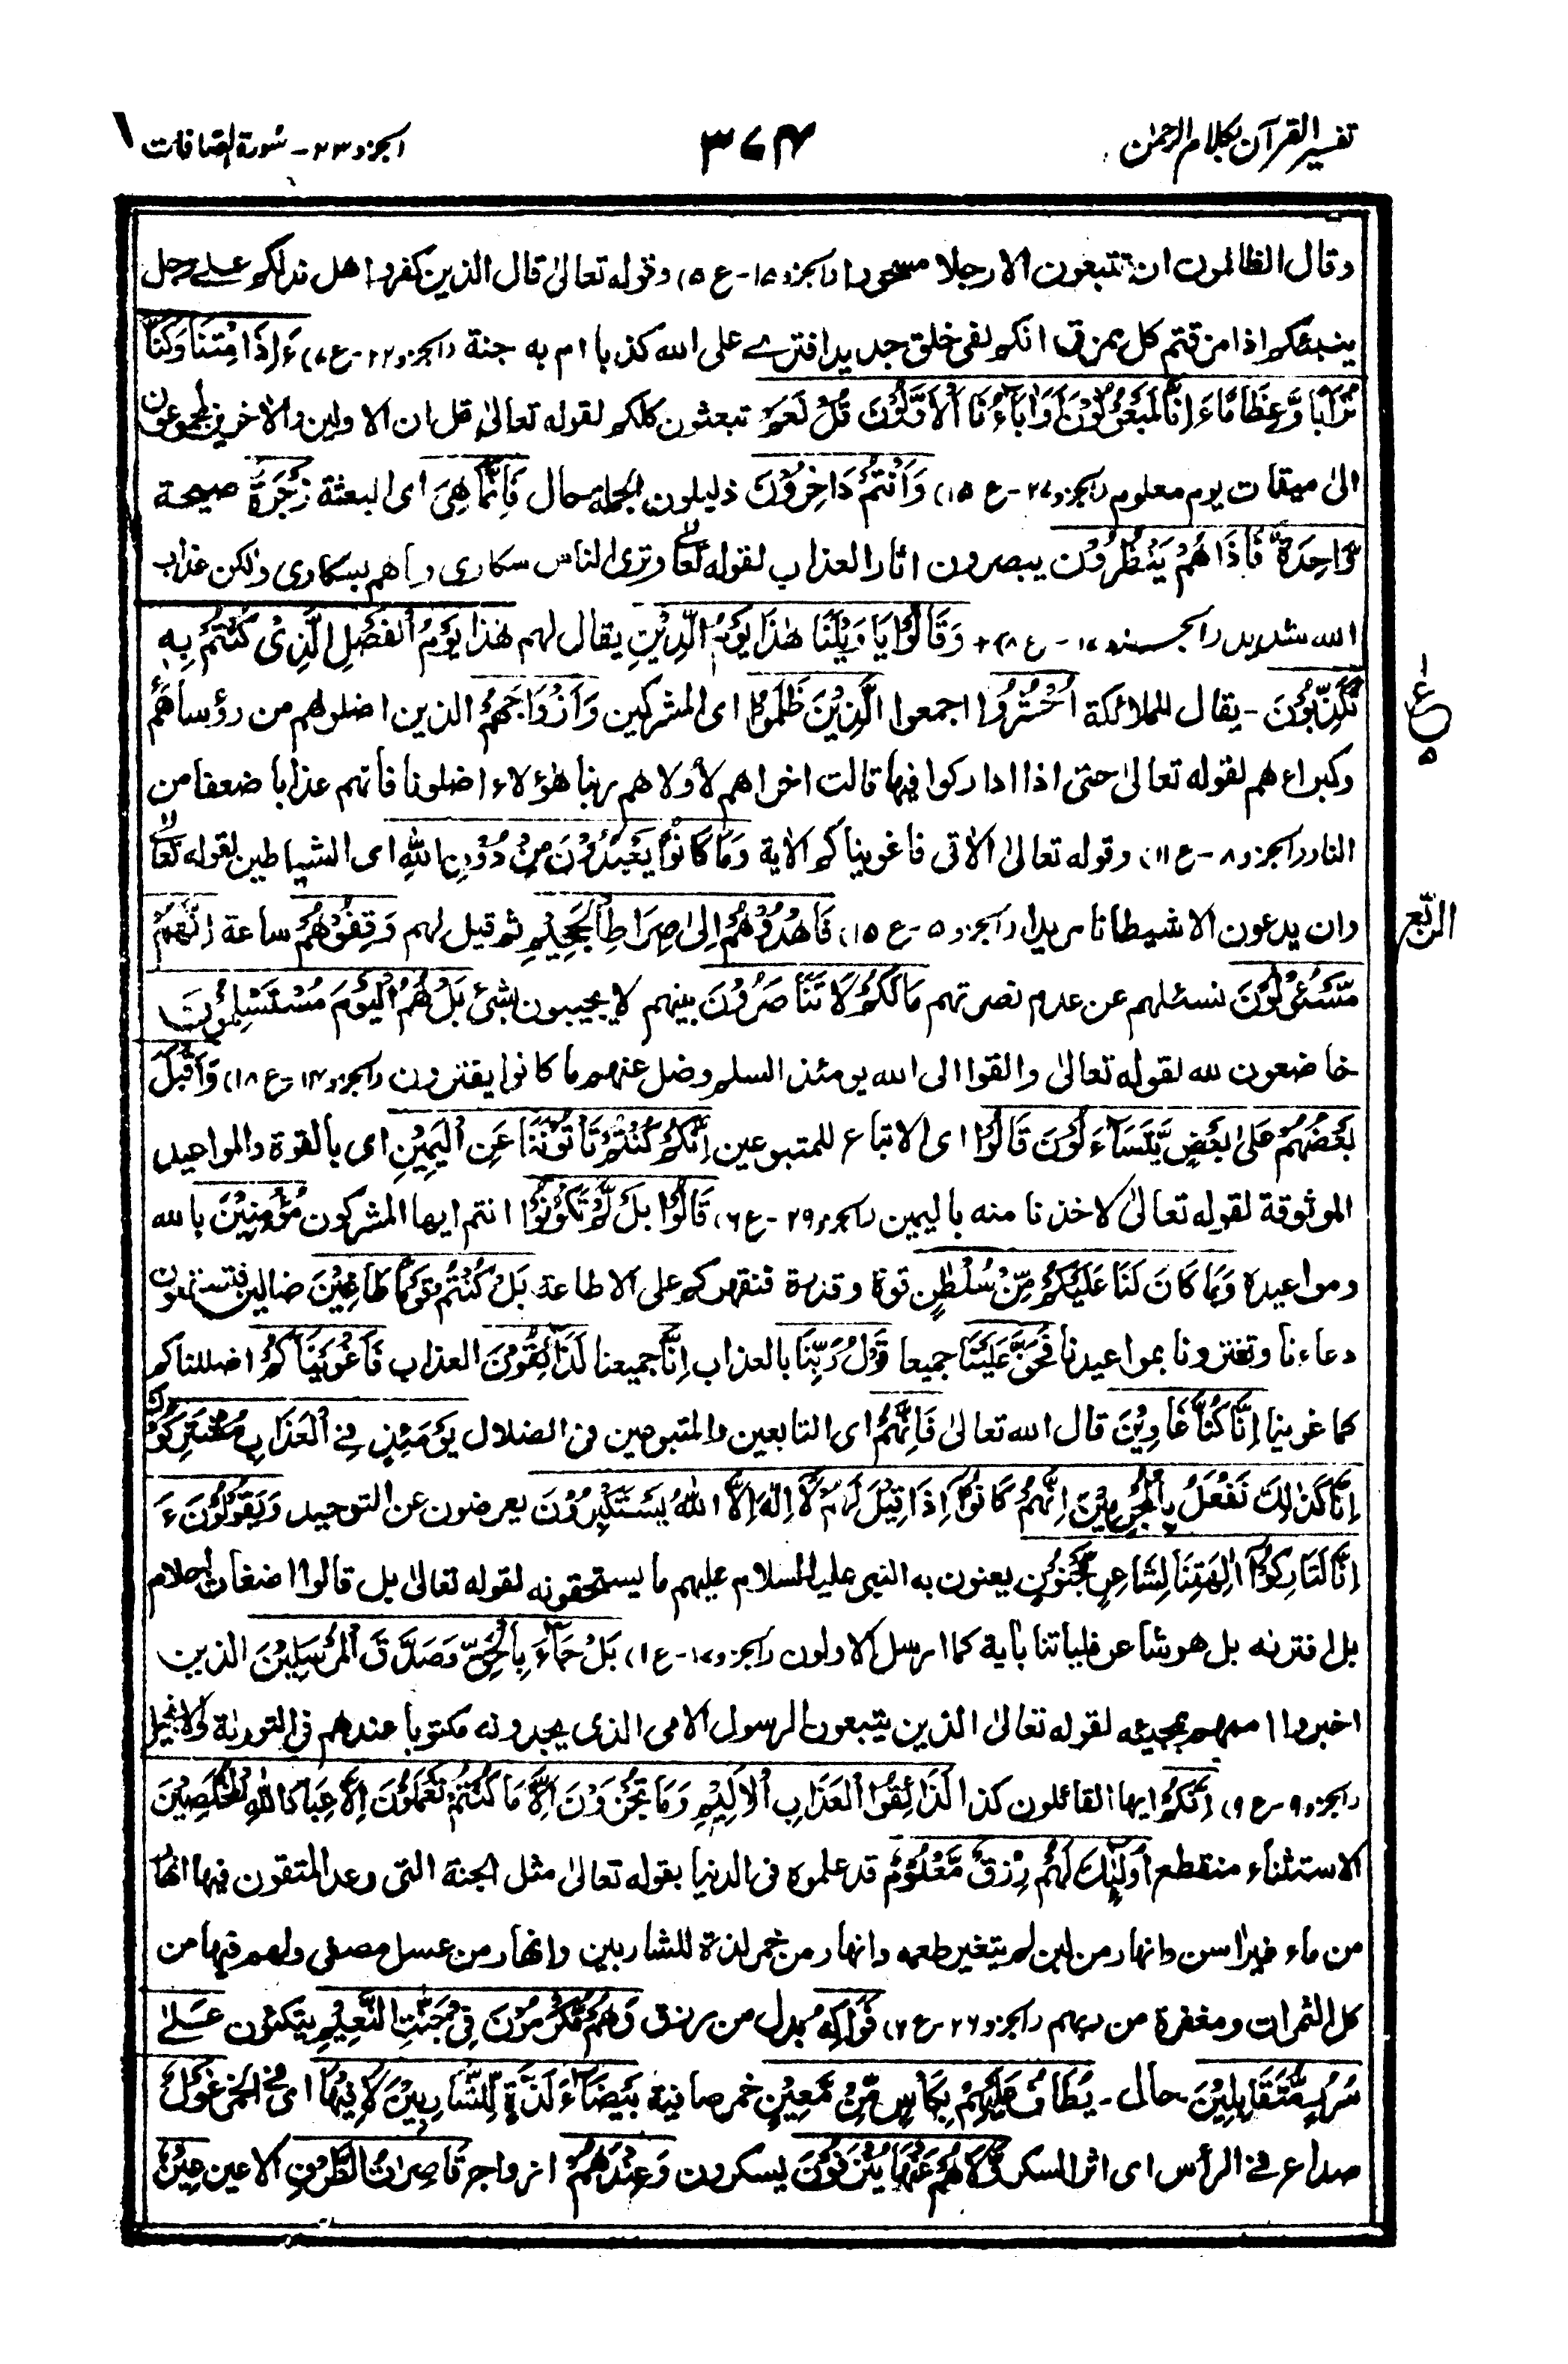 تفسير القرآن بكلام الرحمٰن
٣٧٤
الجزو ٢٣ - سُورة الصّافات
وقال الظالمون ان تتبعون الا رجلا مسحورا (الجزو ١٥-ع ٥) وقوله تعالىٰ قال الذين كفروا هل ندلكم على رجل
ينبئكم اذا مزقتم كل ممزق انكم لفى خلق جديد افترے على الله كذبا ام به جنة (الجزو ٢٢-ع ٧) ءَاِذَا مِتْنَا وَكُنَّا
تُرَابًا وَّعِظَامًا ءَاِنَّا لَمَبْعُوْثُوْنَ اَوَاٰبَآءُنَا الْاَوَّلُوْنَ قُلْ نَعَمْ تبعثون كلكم لقوله تعالىٰ قل ان الاولين والاٰخرين لمجموعون
الىٰ ميقات يوم معلوم (الجزو ٢٧-ع ١٥) وَاَنْتُمْ دَاخِرُوْنَ ذليلون الجملة حال فَاِنَّمَا هِىَ اى البعثة زَجْرَةٌ صيحة
وَّاحِدَةٌ فَاِذَا هُمْ يَنْظُرُوْن يبصرون اثار العذاب لقوله تعالىٰ وترى الناس سكارى وما هم بسكارى ولٰكن عذاب
الله شديد (الجزو ١٧-ع ٨) + وَقَالُوْا يَا وَيْلَنَا هٰذَا يَوْمُ الدِّيْنِ يقال لهم هٰذَا يَوْمُ الْفَصْلِ الَّذِىْ كُنْتُمْ بِهٖ
تُكَذِّبُوْنَ - يقال للملائكة اُحْشُرُوا اجمعوا الَّذِيْنَ ظَلَمُوْا اى المشركين وَاَزْوَاجَهُمْ الذين اضلوهم من رؤساهم
وكبراءهم لقوله تعالىٰ حتى اذا اداركوا فيها قالت اخراهم لأولاهم ربنا هٰؤلاء اضلونا فاتهم عذابا ضعفا من
النار (الجزو ٨-ع ١١) وقوله تعالىٰ الاٰتى فاغويناكم الاية وَمَا كَانُوْا يَعْبُدُوْنَ مِنْ دُوْنِ اللهِ اى الشياطين لقوله تعالىٰ
وان يدعون الا شيطانا مريدا (الجزو ٥-ع ١٥) فَاهْدُوْهُمْ اِلىٰ صِرَاطِ الْجَحِيْمِ ثم قيل لهم وَقِفُوْهُمْ ساعة اِنَّهُمْ
مَّسْئُوْلُوْنَ نسئلهم عن عدم نصرتهم مَالَكُمْ لَا تَنَاصَرُوْنَ بينهم لا يجيبون بشئ بَلْ هُمُ الْيَوْمَ مُسْتَسْلِمُوْنَ
خاضعون لله لقوله تعالىٰ والقوا الى الله يومئذ السلم وضل عنهم ما كانوا يفترون (الجزو ١٤-ع ١٨) وَاَقْبَلَ
بَعْضُهُمْ عَلىٰ بَعْضٍ يَّتَسَآءَلُوْنَ قَالُوْا اى الاتباع للمتبوعين اِنَّكُمْ كُنْتُمْ تَأْتُوْنَنَا عَنِ الْيَمِيْنِ اى بالقوة والمواعيد
الموثوقة لقوله تعالىٰ لاخذنا منه باليمين (الجزو ٢٩-ع ٦) قَالُوْا بَلْ لَّمْ تَكُوْنُوْا انتم ايها المشركون مُؤْمِنِيْنَ بالله
ومواعيده وَمَا كَانَ لَنَا عَلَيْكُمْ مِّنْ سُلْطٰنٍ قوة وقدرة فنقهركم على الاطاعة بَلْ كُنْتُمْ قَوْمًا طَاغِيْنَ ضالين فتستمعون
دعاءنا وتغترونا بمواعيدنا فَحَقَّ عَلَيْنَا جميعا قَوْلُ رَبِّنَا بالعذاب اِنَّا جميعنا لَذَآئِقُوْنَ العذاب فَاَغْوَيْنَاكُمْ اضللناكم
كما غوينا اِنَّا كُنَّا غَاوِيْنَ قال الله تعالىٰ فَاِنَّهُمْ اى التابعين والمتبوعين فى الضلال يَوْمَئِذٍ فِى الْعَذَابِ مُشْتَرِكُوْنَ
اِنَّا كَذٰلِكَ نَفْعَلُ بِالْمُجْرِمِيْنَ اِنَّهُمْ كَانُوْا اِذَا قِيْلَ لَهُمْ لَآ اِلٰهَ اِلَّا اللهُ يَسْتَكْبِرُوْنَ يعرضون عن التوحيد وَيَقُوْلُوْنَ ءَ
اِنَّا لَتَارِكُوْا اٰلِهَتِنَا لِشَاعِرٍ مَّجْنُوْنٍ يعنون به النبى عليه السلام عليهم ما يستحقونه لقوله تعالىٰ بل قالوا اضغاث احلام
بل افترٰىه بل هو شاعر فلياتنا باٰية كما ارسل الاولون (الجزو ١٧-ع ١) بَلْ جَآءَ بِالْحَقِّ وَصَدَّقَ الْمُرْسَلِيْنَ الذين
اخبروا اممهم بمجيئه لقوله تعالىٰ الذين يتبعون الرسول الامى الذى يجدونه مكتوبا عندهم فى التورىٰة والانجيل
(الجزو ٩-ع ٩) اِنَّكُمْ ايها القائلون كذا لَذَآئِقُوا الْعَذَابِ الْاَلِيْمِ وَمَا تُجْزَوْنَ اِلَّا مَا كُنْتُمْ تَعْمَلُوْنَ اِلَّا عِبَادَ اللهِ الْمُخْلَصِيْنَ
الاستثناء منقطع اُولٰٓئِكَ لَهُمْ رِزْقٌ مَّعْلُوْمٌ قد علموه فى الدنيا بقوله تعالىٰ مثل الجنة التى وعد المتقون فيها انهار
من ماء غير اٰسن وانهار من لبن لم يتغير طعمه وانهار من خمر لذة للشاربين وانهار من عسل مصفى ولهم فيها من
كل الثمرات ومغفرة من ربهم (الجزو ٢٦-ع ٦) فَوَاكِهُ بدل من رزق وَهُمْ مُّكْرَمُوْنَ فِىْ جَنّٰتِ النَّعِيْمِ يتكئون عَلىٰ
سُرُرٍ مُّتَقَابِلِيْنَ حالى - يُطَافُ عَلَيْهِمْ بِكَأْسٍ مِّنْ مَّعِيْنٍ خمر صافية بَيْضَآءَ لَذَّةٍ لِّلشَّارِبِيْنَ لَا فِيْهَا اى فى الخمر غَوْلٌ
صداع فى الرأس اى اثر السكر وَّلَا هُمْ عَنْهَا يُنْزَفُوْنَ يسكرون وَعِنْدَهُمْ ازواج قَاصِرَاتُ الطَّرْفِ الاعين عِيْنٌ
ع
٥
الرّبع